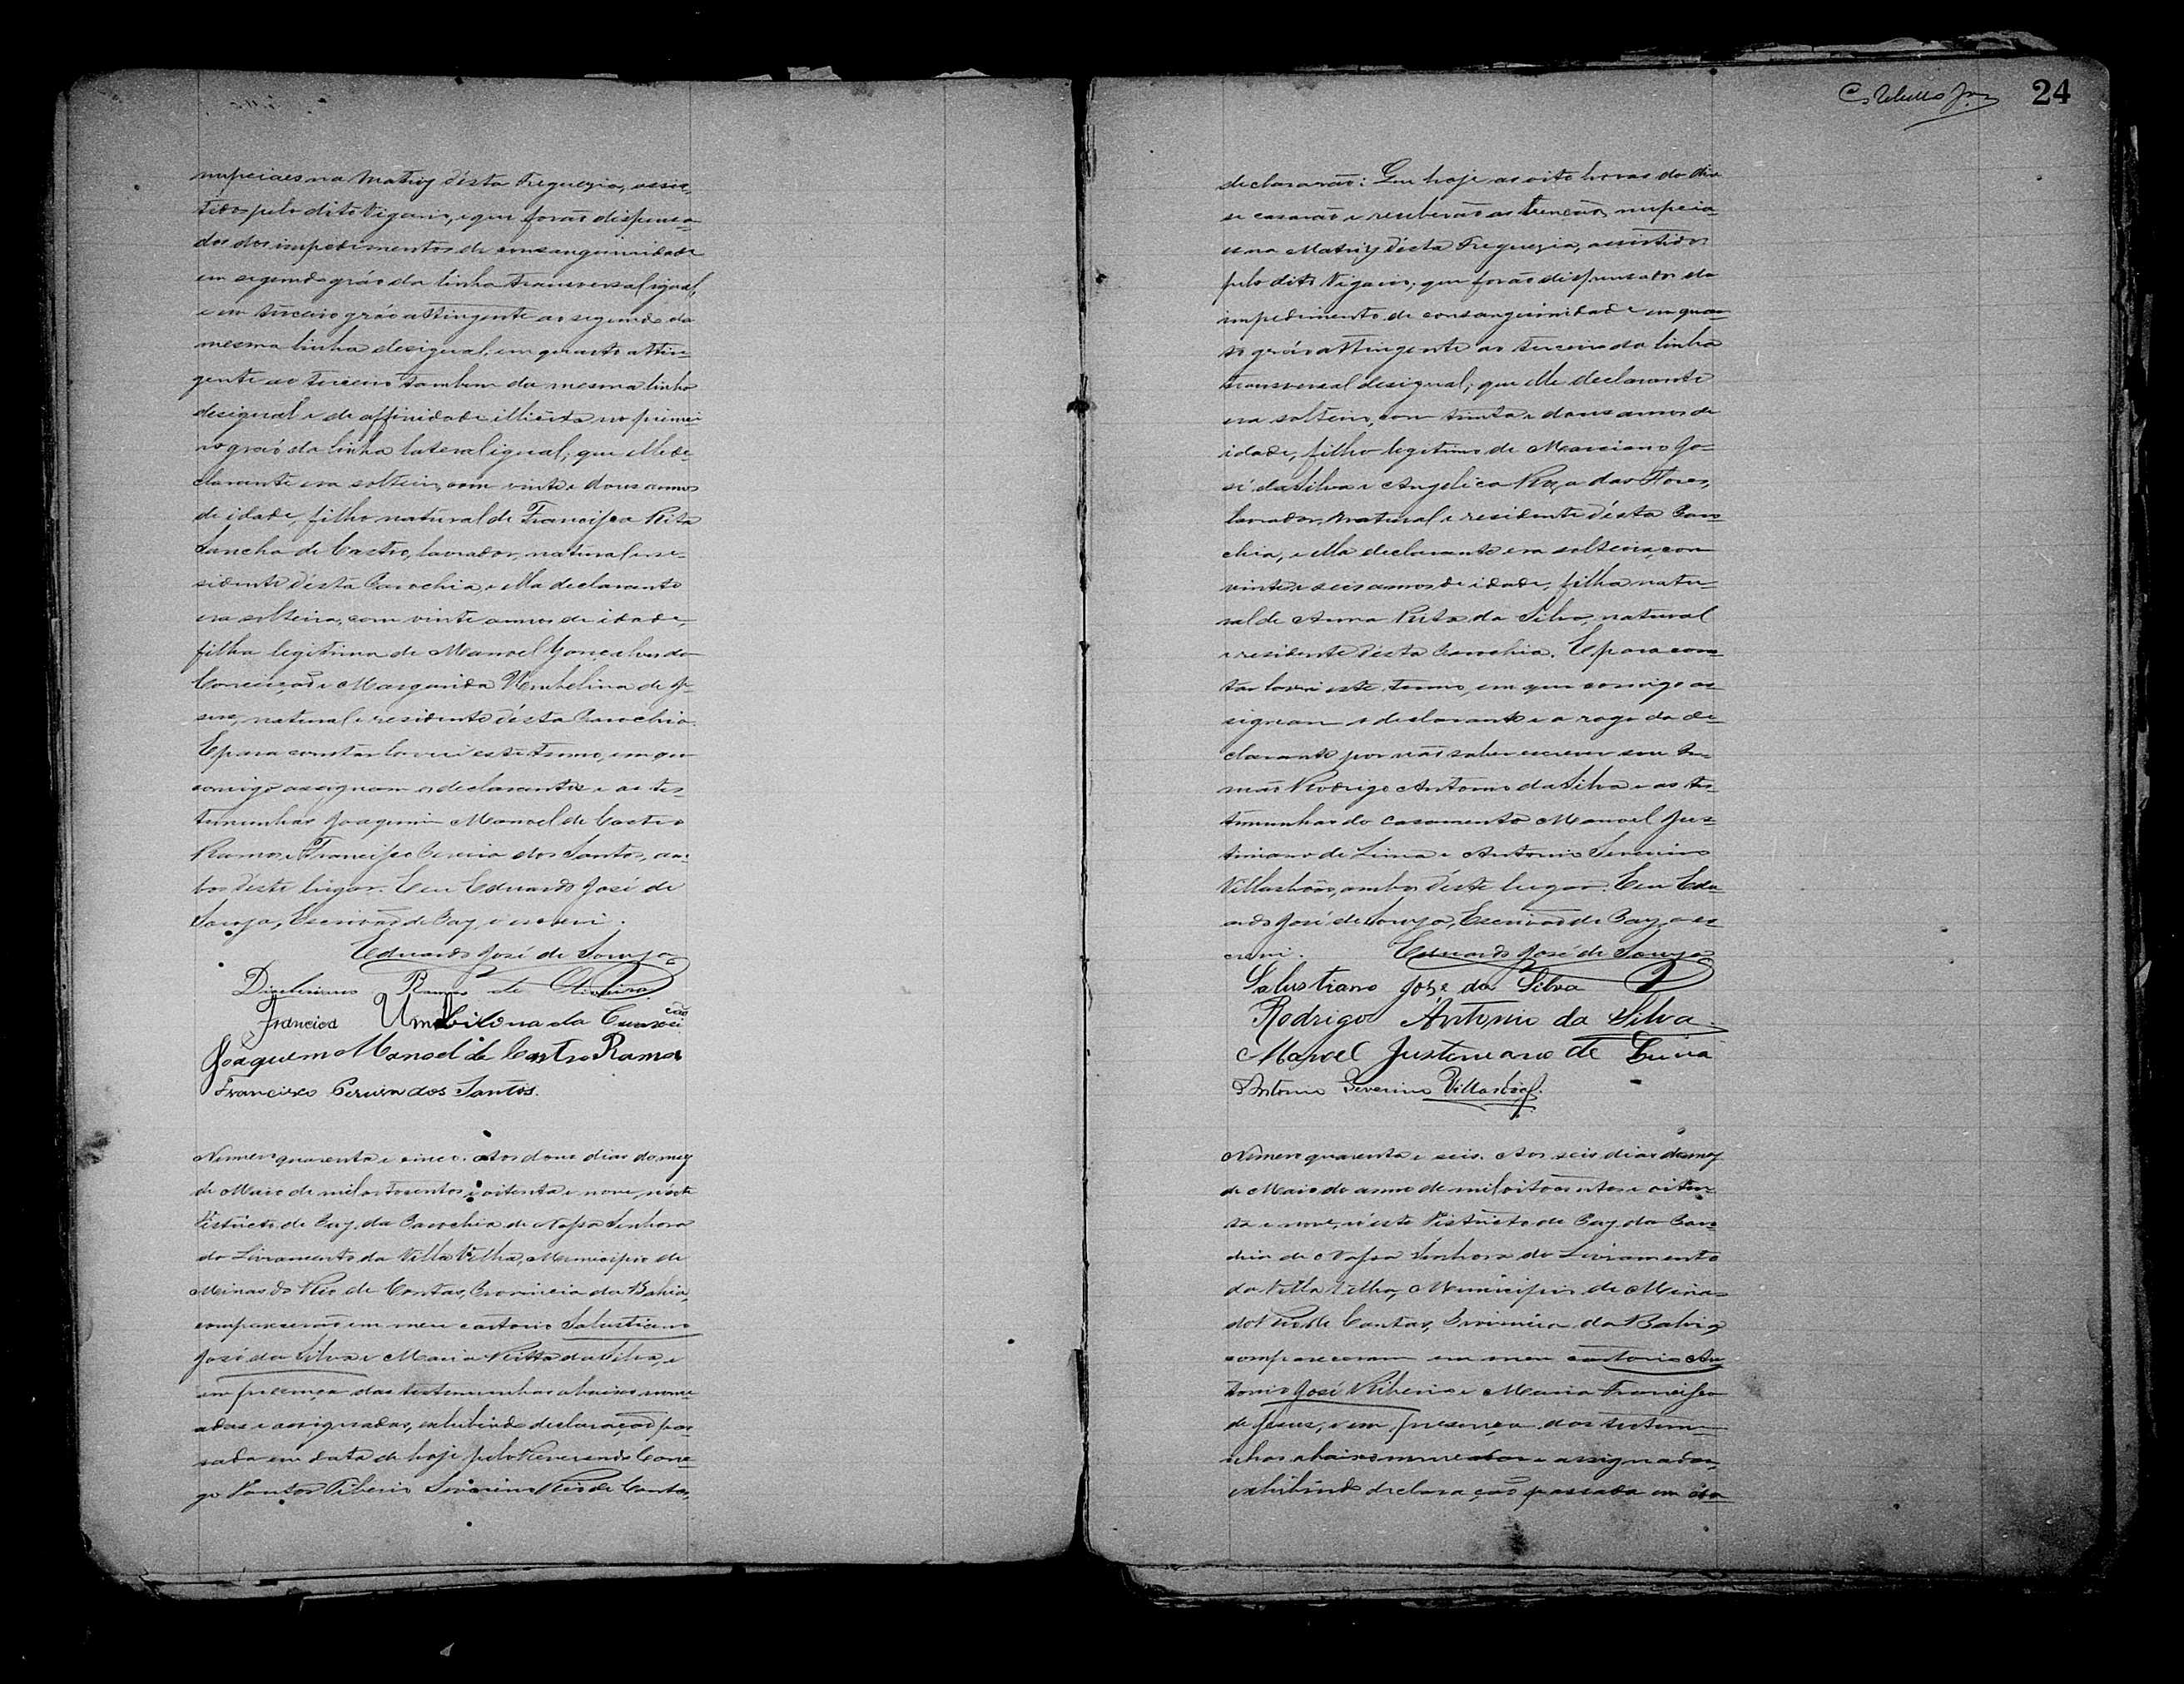 nupciaes na Matriz désta Freguezia, assis-
tidos pelo dito Vigario, e que forão dispensa-
dos dos impedimentos de consanguinidade
em segundo gráo da linha transversal igual,
e em terceiro gráo attingente ao segundo da
mesma linha desigual, em quarto attin-
gente ao terceiro tambem da mesma linha
desigual e de affinidade illicita no primei-
ro gráo da linha lateral igual; que elle de-
clarante era solteiro, com vinte e dous annos
de idade, filho natural de Francisca Rita
Sancha de Castro, lavrador, natural e re-
sidente désta Parochia, e ella declarante
era solteira, com vinte annos de idade,
filha legitima de Manoel Gonçalves da
Conceição e Margarida Umbelina de Je-
sus, natural e residente désta Parochia.
E para constar lavrei este termo, em que
comigo assignam os declarantes e as tes-
temunhas Joaquim Manoel de Castro
Ramos e Francisco Pereira dos Santos, am-
bos déste lugar. E eu Eduardo José de
Souza, Escrivão de Paz, o escrevi.
Eduardo José de Souza
Ramos de Oliveira
Francisca Umbilina da Conceição
Joaquem Manoel de Castro Ramos
Francisco Pereira dos Santos.
Numero quarenta e cinco. Aos dous dias do mez
de Maio de mil oitocentos e oitenta e nove, néste
Districto de Paz, da Parochia de Nossa Senhora
do Livramento da Villa Velha, Municipio de
Minas do Rio de Contas, Provincia da Bahia,
comparecerão em meu cartorio Salustiano
José da Silva e Maria Ritta da Silva, e
em presença das testemunhas abaixo nome-
adas e assignadas, exhibindo declaração pas-
sada em data de hoje pelo Reverendo Cone-
go Doutor Tiberio Severino Rio de Contas,
24
declararão: Que hoje as oito horas do dia
se casarão e receberão as bencãos nupcia-
es na Matriz désta Freguezia, assistidos
pelo dito Vigario; que forão dispensados do
impedimento de consanguinidade em quar-
to gráo attingente ao terceiro da linha
transversal desigual; que elle declarante
era solteiro, com trinta e dous annos de
idade, filho legitimo de Marciano Jo-
sé da Silva e Angelica Roza das Flores,
lavrador, natural e residente désta Paro-
chia, e ella declarante era solteira, com
vinte e seis annos de idade, filha natu-
ral de Anna Rita da Silva, natural
e residente désta Parochia. E para cons-
tar lavrei este termo, em que comigo as-
signam o declarante e a rogo da de-
clarante por não saber escrever seu ir-
mão Rodrigo Antonio da Silva e as tes-
temunhas do casamento Manoel Jus-
tiniano de Lima e Antonio Severino
Villasbôas, ambos déste lugar. E eu Edu-
ardo José de Souza, Escrivão de Paz, o es-
crevi. Eduardo José de Souza
Salustiano José da Silva
Rodrigo Antonio da Silva
Manoel Justeniano de Lima
Antonio Severino Villasbôas.
Numero quarenta e seis. Aos seis dias do mez
de Maio do anno de mil oitocentos e oiten-
ta e nove, n'éste Districto de Paz da Paro-
chia de Nossa Senhora do Livramento
da Villa Velha, Municipio de Minas
do Rio de Contas, Provincia da Bahia,
compareceram em meu cartorio An-
tonio José Ribeiro e Maria Francisca
de Jesus, e em presença das testemu-
nhas abaixo nomeadas e assignadas,
exhibindo declaração passada em da-